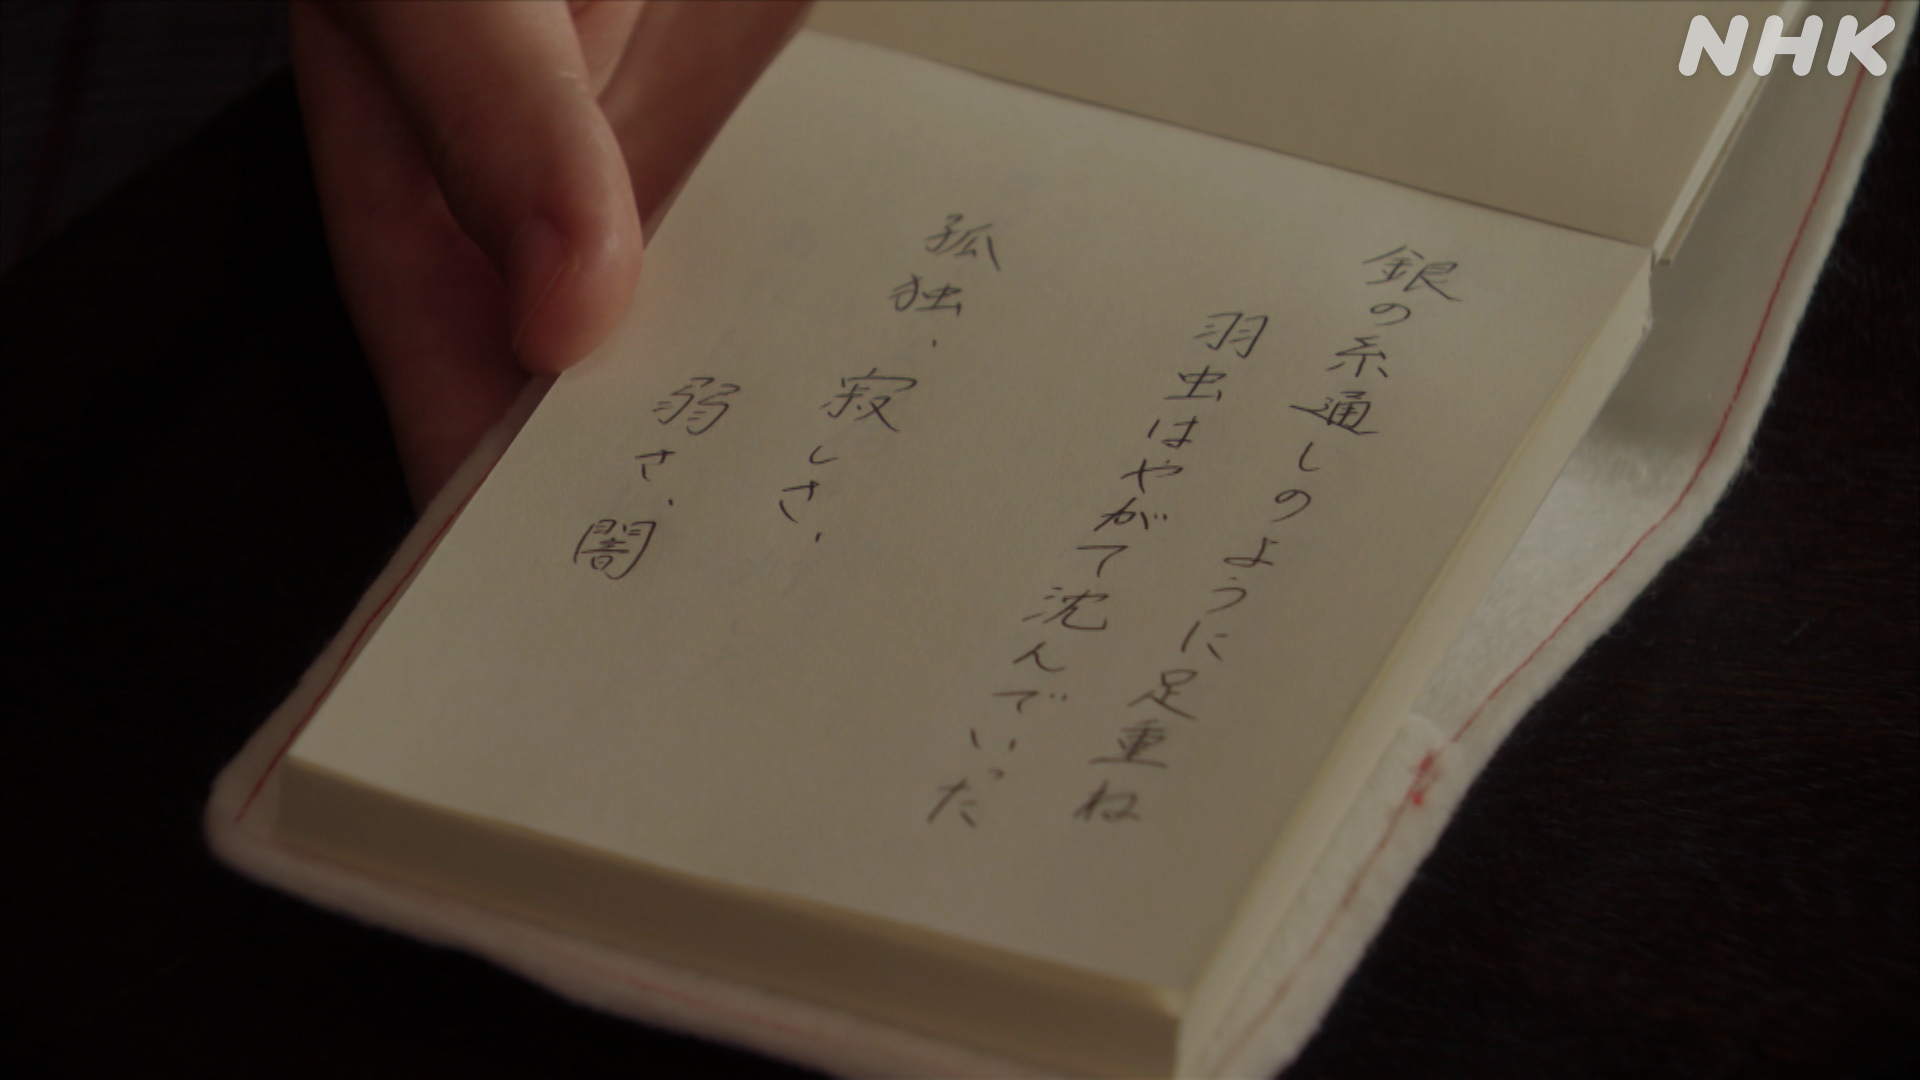 NHK
銀の糸通しのように足重ね
羽虫はやがて沈んでいった
孤独、
寂しさ、
弱さ、闇